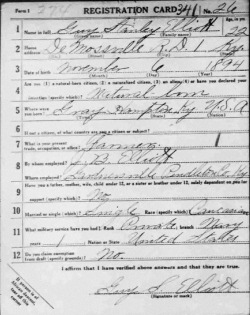 Form 1
REGISTRATION CARD
No. 26
1 Name in full Guy Stanley Elliott Age, in yrs. 22
(Given name) (Family name)
2 Home address DeMossville R.D. 1 Ky.
(No.) (Street) (City) (State)
3 Date of birth November 6 1894
(Month) (Day) (Year)
4 Are you (1) a natural-born citizen, (2) a naturalized citizen, (3) an alien, (4) or have you declared your
intention (specify which)? Natural born
5 Where were you born? Ky U.S.A
(Town) (State) (Nation)
6 If not a citizen, of what country are you a citizen or subject?
7 What is your present trade, occupation, or office? Farmer
8 By whom employed? Elliott
Where employed? Pendleton Ky
9 Have you a father, mother, wife, child under 12, or a sister or brother under 12, solely dependent on you for
support (specify which)? No
10 Married or single (which)? Single Race (specify which)? Caucasian
11 What military service have you had? Rank Private branch Navy
years 1 Nation or State United States
12 Do you claim exemption from draft (specify grounds)? No.
I affirm that I have verified above answers and that they are true.
Guy S. Elliott
(Signature or mark)